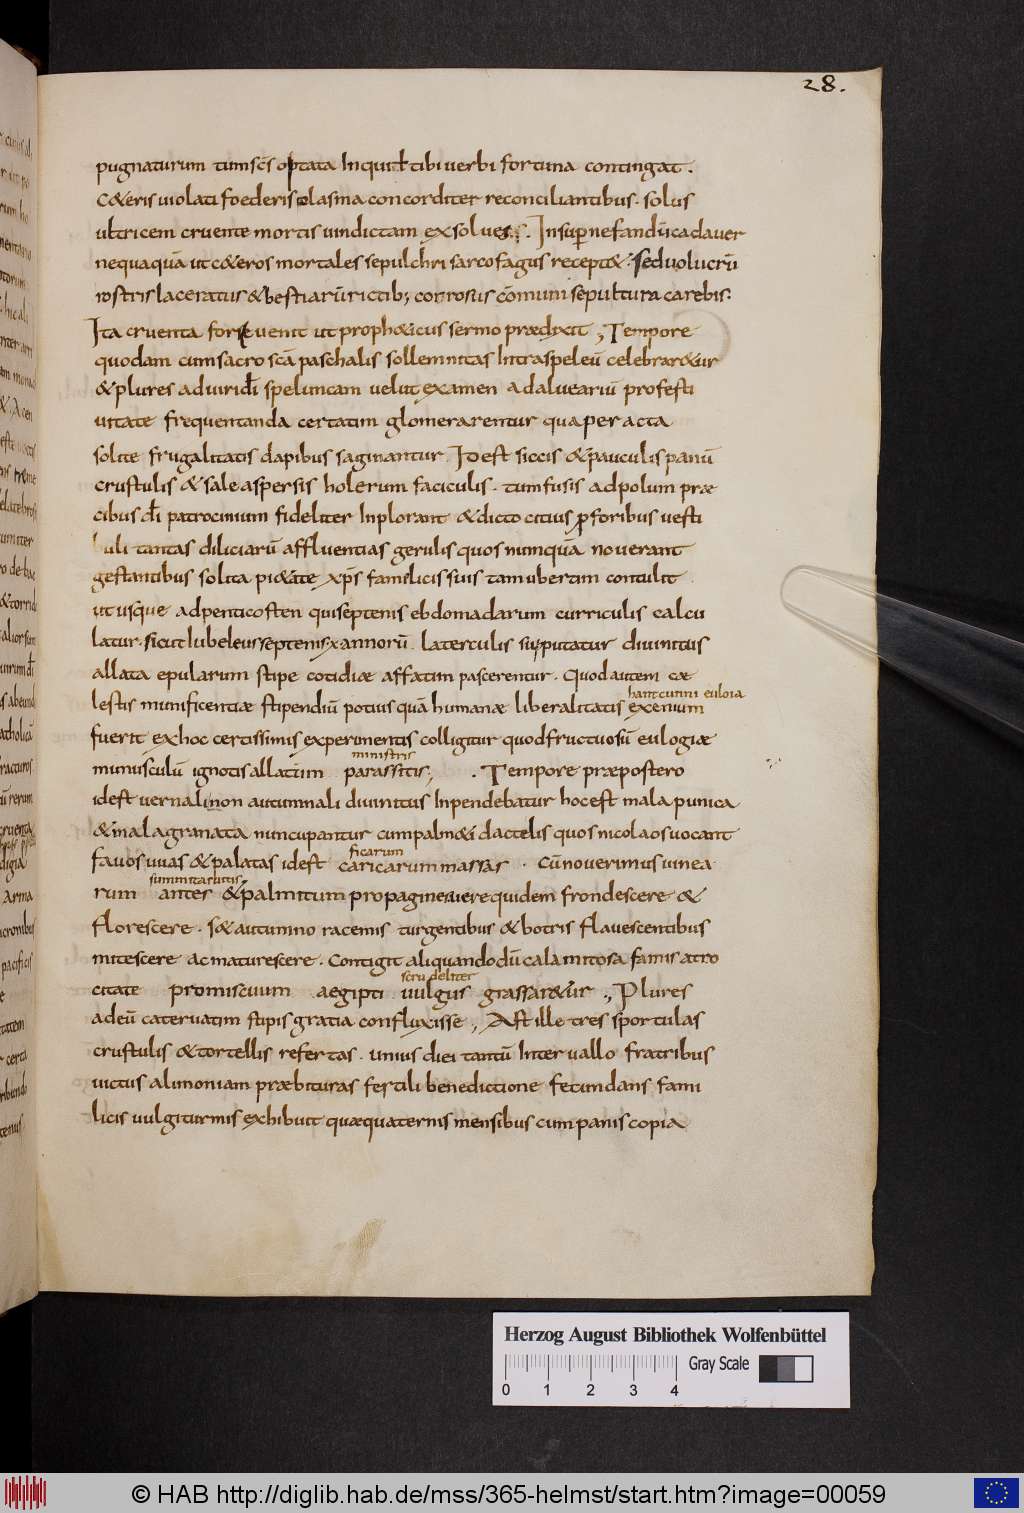 28.
pugnaturum tum scs optata Inquit tibi verbi fortuna contingat.
C&eris violati foederis plasma concorditer reconciliantibus. solus
ultricem cruente mortis vindictam exsolues. Insuper nefandū cadauer
nequaquā ut c&eros mortales sepulchri sarcofagus recept&. sed volucrū
rostris laceratus & bestiarū rictib; corrosus cōmuni sepultura carebis.
Ita cruenta fors evenit ut proph&icus sermo prædixit; Tempore
quodam cum sacro scā paschalis sollemnitas Intra speleū celebrar&ur
& plures ad viri dī speluncam velut examen ad aluearium profesti
uitate frequentanda certatim glomerarentur qua per acta
solite frugalitatis dapibus saginantur. Id est siccis & pauculis panū
crustulis & sale aspersis holerum faciculis. tum fusis ad polum præ
cibus dī patrocinium fideliter Inplorant & dicto citius p foribus vesti
buli tantas diliciarū affluentias gerulis quos numquā noverant
gestantibus solita pi&ate xps famēlicis suis tam ubertim contulit
ut usque ad penticosten qui septenis ebdomadarum curriculis calcu
latur. sicut Iubeleus septenis x annorū laterculis supputatur divinitus
allata epularum stipe cotidiæ affatim pascerentur. Quod autem cæ
hant cutini euloia
lestis munificentiæ stipendiū potius quā humanæ liberalitatis exenium
fuerit ex hoc certissimis experimentis colligitur quod fructuosū eulogiæ
ministris
munusculū ignotis allatum parassitis; . Tempore præpostero
id est vernali non autumnali divinitus Inpendebatur hoc est mala punica
& mala granata nuncupantur cum palm&i dactelis quos nicolaos vocant
ficarum
favos uvas & palatas id est caricarum massas . Cū noverimus vinea
summitas vitis
rum antes & palmitum propagines vere quidem frondescere &
florescere. s& autumno racemis turgentibus & botris flavescentibus
mitescere ac maturescere. Contigit aliquando dū calamitosa famis atro
scru deliter
citate promiscuum aegipti vulgus grassar&ur., Plures
ad eū catervatim stipis gratia confluxisse, Ast ille tres sportulas
crustulis & tortellis refertas. unius diei tantū Intervallo fratribus
victus alimoniam præbituras fertili benedictione fecundans fami
licis vulgi turmis exhibuit quæ quaternis mensibus cum panis copia
Herzog August Bibliothek Wolfenbüttel
Gray Scale
0 1 2 3 4
© HAB http://diglib.hab.de/mss/365-helmst/start.htm?image=00059